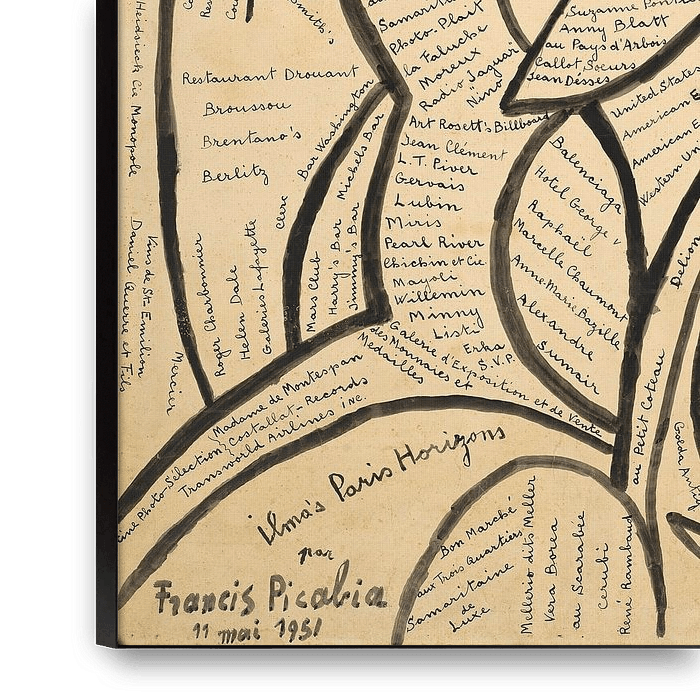 Heidsieck Cie Monopole
Smith's
Samaritaine
Photo-Plait
la Faluche
Moreux
Radio "Jaguar"
Nino
Suzanne
Anny Blatt
au Pays d'Arbois
Callot, Soeurs
Jean Dessès
Restaurant Drouant
Broussou
Brentano's
Berlitz
Bar Washington
Michels Bar
Mars Club
Harry's Bar
Jimmy's Bar
Art Rosett's Billboard
Jean Clément
L.T. Piver
Gervais
Lubin
Miris
Pearl River
Chichin et Cie
Mayoli
Willemin
Minny
Listi
Erka
S.V.P.
United States
American
American E
Western Un
Balenciaga
Hotel George V
Raphaël
Marcelle Chaumont
Anne Marie Bazille
Alexandre
Sumair
Vins de St-Emilion
Daniel Querre et Fils
Mercier
Roger Charbonnier
Helen Dale
Galeries Lafayette
Galerie d'Exposition et de Vente
des Monnaies et
Médailles
Madame de Montespan
Costallat-Records
Ciné Photo-Sélection
Transworld Airlines inc.
au Petit Coteau
Ilma's Paris Horizons
par
Francis Picabia
11 mai 1951
Bon Marché
aux Trois Quartiers
Samaritaine
de
Luxe
Mellerio dits Meller
Vera Borea
au Scarabée
Cerubi
René Rambaud